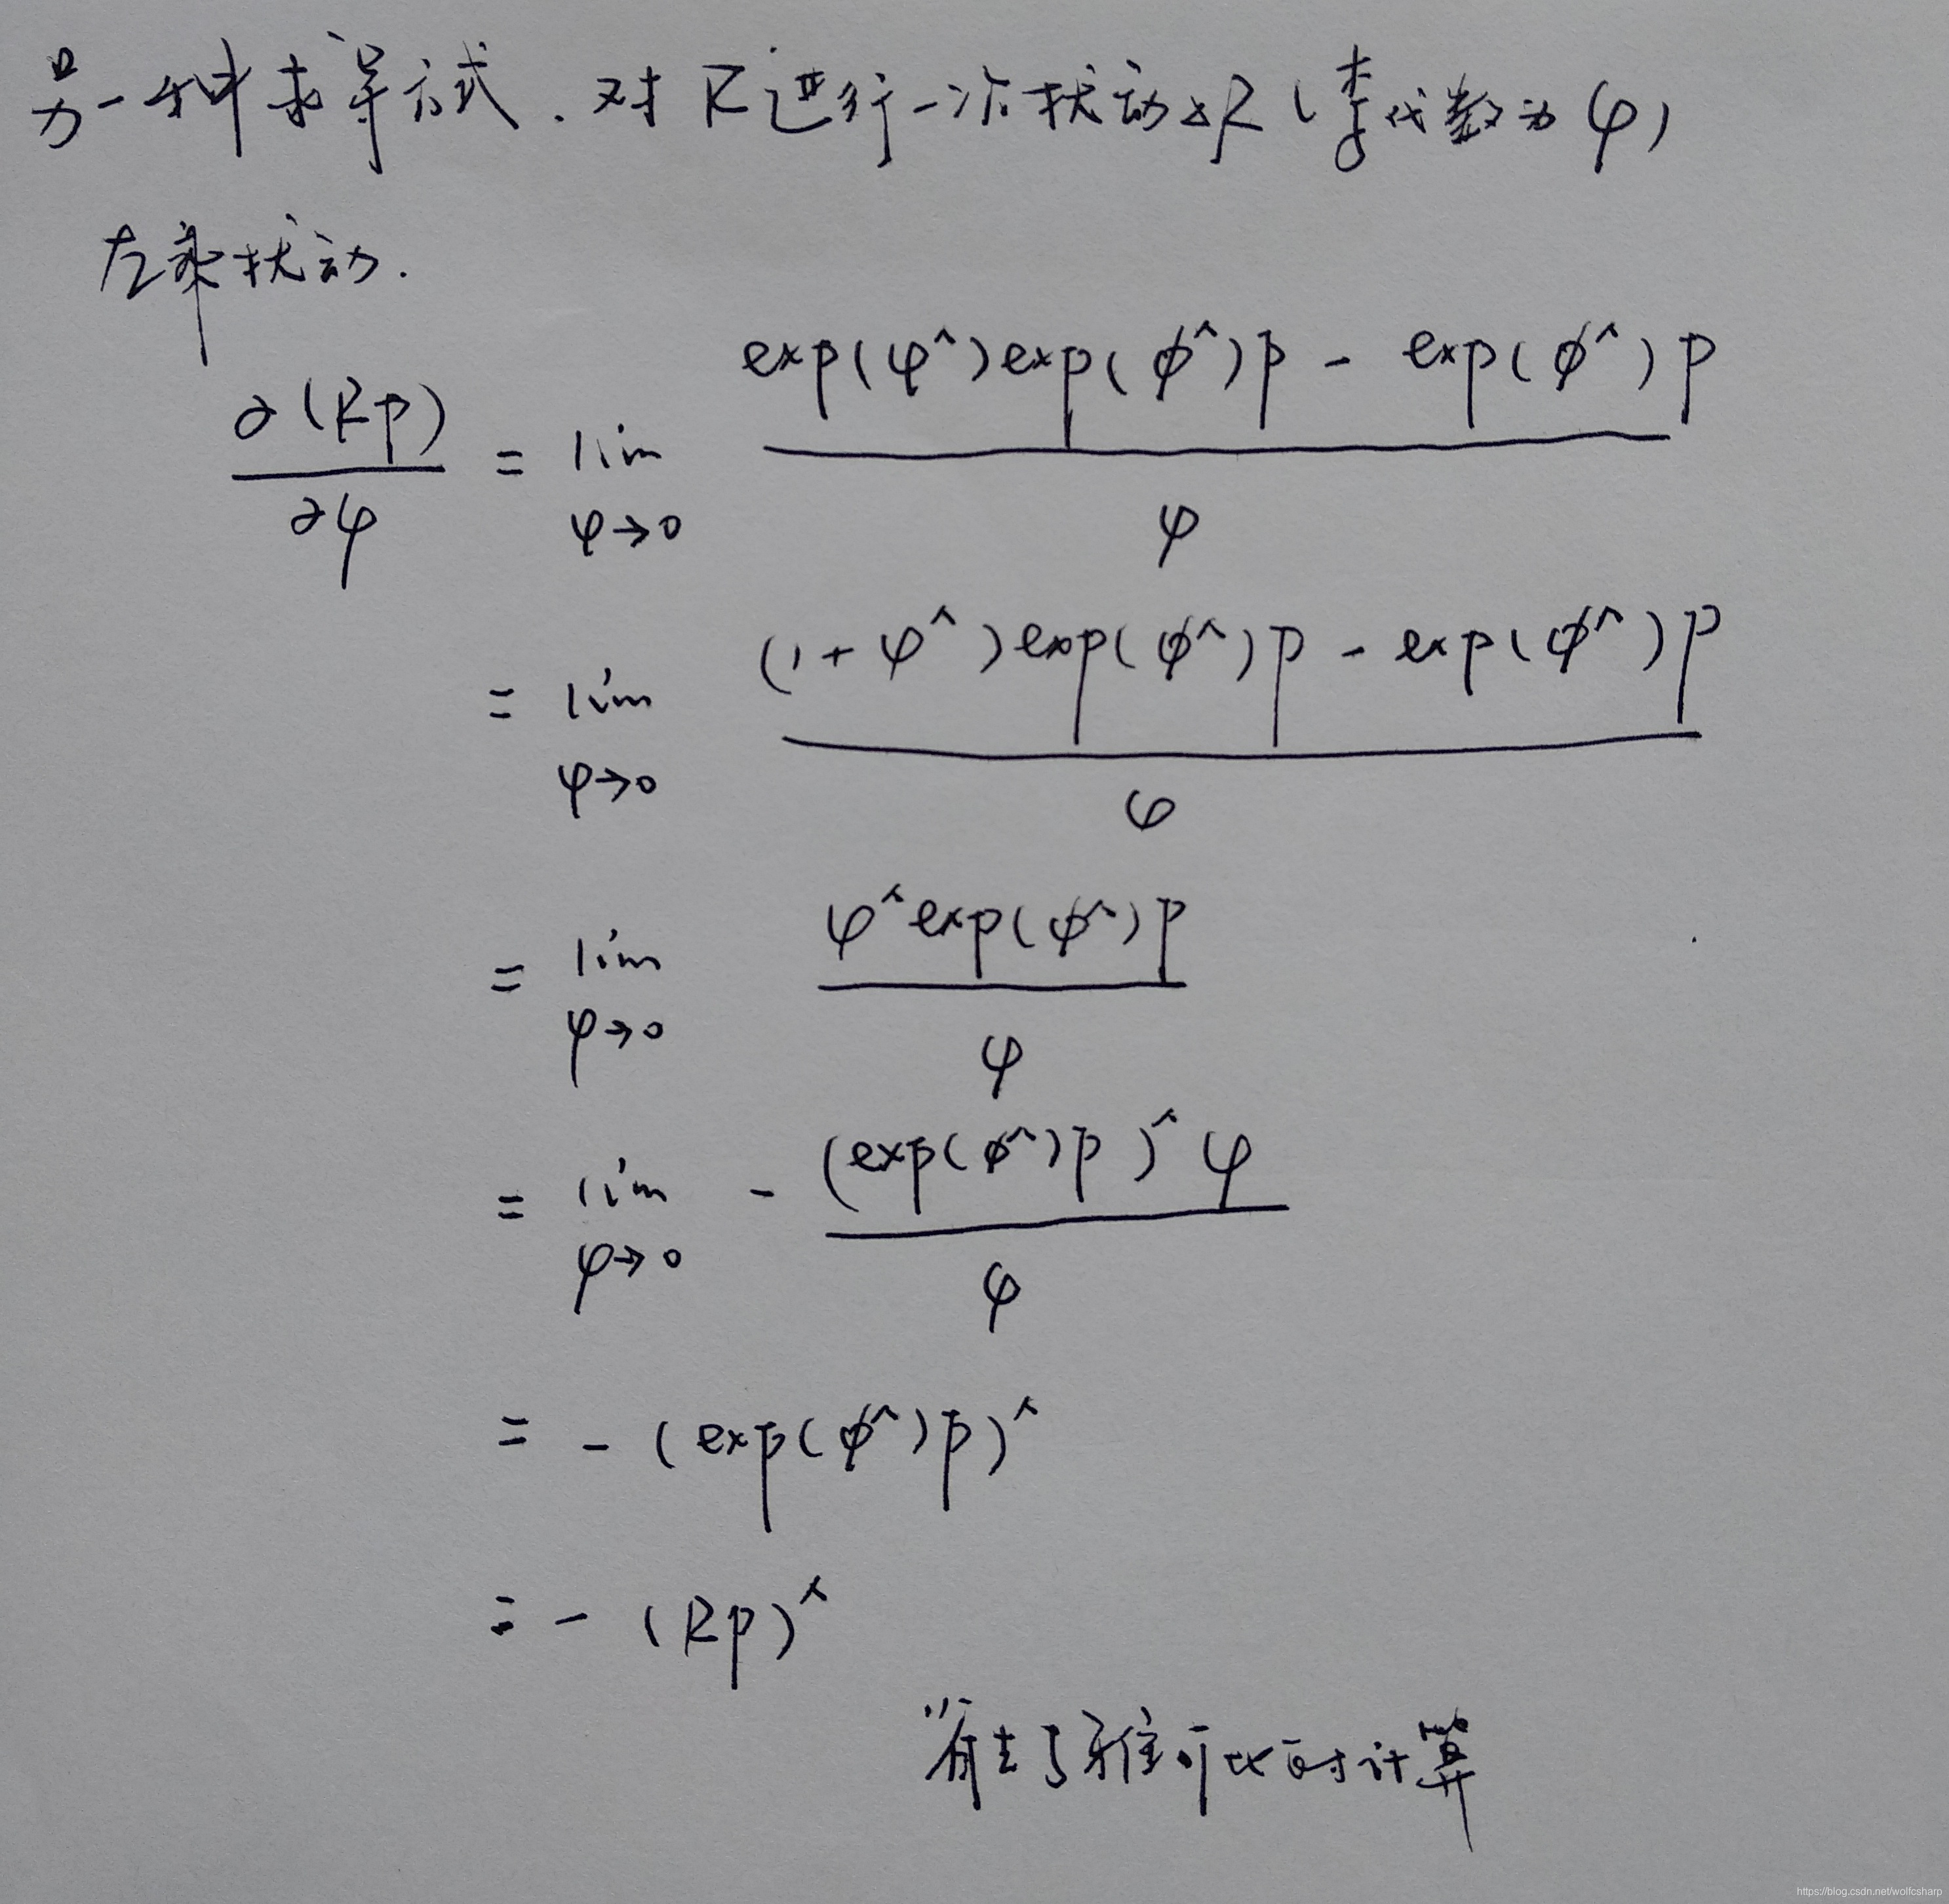 另一种求导方式.对R进行一次扰动△R(李代数为φ)
左乘扰动.
∂(Rp)/∂φ = lim φ→0 (exp(φ^)exp(ϕ^)p - exp(ϕ^)p)/φ
= lim φ→0 ((1+φ^)exp(ϕ^)p - exp(ϕ^)p)/φ
= lim φ→0 φ^exp(ϕ^)p/φ
= lim φ→0 -(exp(ϕ^)p)^φ/φ
= -(exp(ϕ^)p)^
= -(Rp)^
省去了雅可比的计算
https://blog.csdn.net/wolfcsharp